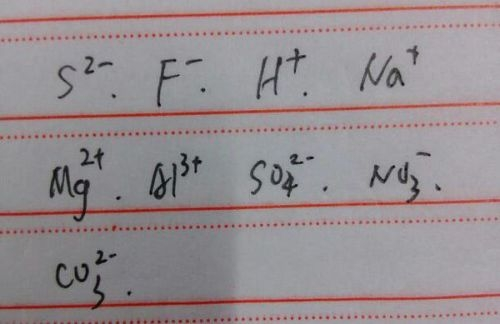 S²⁻. F⁻. H⁺. Na⁺
Mg²⁺. Al³⁺ SO₄²⁻. NO₃⁻.
CO₃²⁻.